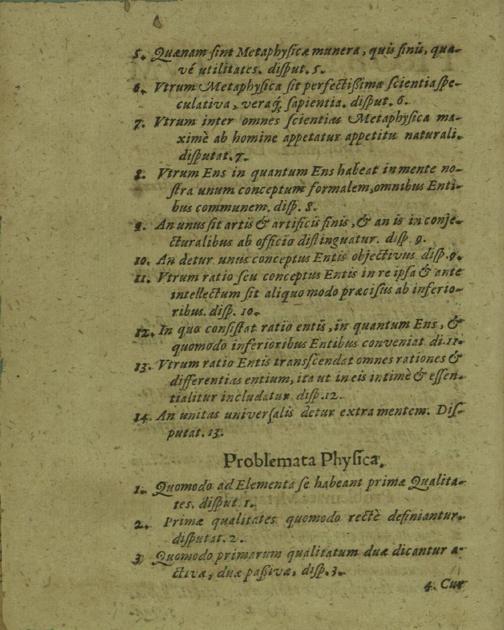 5. Quænam sint Metaphysicæ munera, quis finis, qua-
vé utilitates. disput. 5.
6. Vtrum Metaphysica sit perfectissima scientia spe-
culativa, veraq; sapientia. disput. 6.
7. Vtrum inter omnes scientias Metaphysica ma-
ximè ab homine appetatur appetitu naturali.
disputat. 7.
8. Vtrum Ens in quantum Ens habeat in mente no-
stra unum conceptum formalem, omnibus Enti-
bus communem. disp. 8.
9. An unus sit artis & artificis finis, & an is in conje-
cturalibus ab officio distinguatur. disp. 9.
10. An detur unus conceptus Entis objectivus. disp. 9.
11. Vtrum ratio seu conceptus Entis in re ipsa & ante
intellectum sit aliquo modo præcisus ab inferio-
ribus. disp. 10.
12. In quo consistat ratio entis, in quantum Ens, &
quomodo inferioribus Entibus conveniat. di. 11.
13. Vtrum ratio Entis transcendat omnes rationes &
differentias entium, ita ut in eis intimè & essen-
tialitur includatur. disp. 12.
14. An unitas universalis detur extra mentem. Dis-
putat. 13.
Problemata Physica.
1. Quomodo ad Elementa se habeant primæ Qualita-
tes. disput. 1.
2. Primæ qualitates quomodo rectè definiantur.
disputat. 2.
3. Quomodo primarum qualitatum duæ dicantur a-
ctivæ, duæ passivæ. disp. 3.
4. Cur